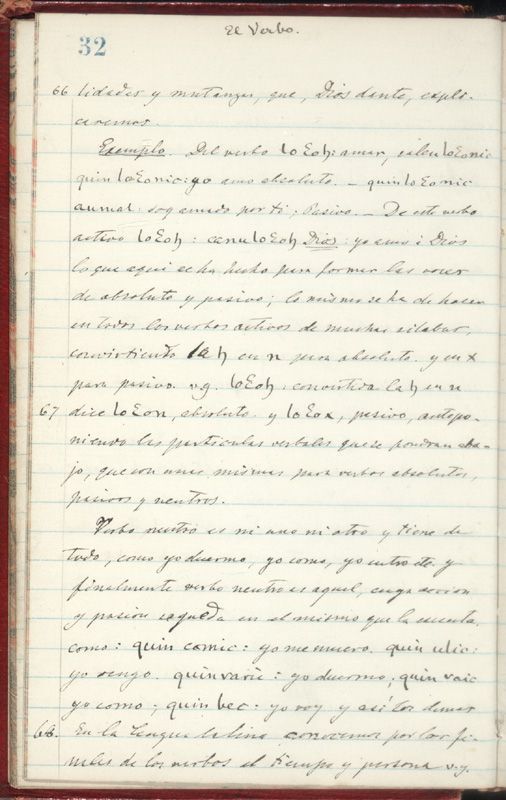 El Verbo.
32
66 lidades y mutanzas, que, Dios dante, expli-
caremos.
Exemplo. Del verbo loɛoh: amar, sale loɛonic
quin loɛonic: yo amo absoluto. — quin loɛonic
aumal: soy amado por ti; Pasivo. — De este verbo
activo loɛoh: canu loɛoh Dios: yo amo á Dios
lo que aqui se ha hecho para formar las voces
de absoluto y pasivo; lo mismo se ha de hacer
en todos los verbos activos de muchas silabas,
convirtiendo la h en n para absoluto. y en x
para pasivo. v.g. loɛoh: convertida la h en n
67 dice loɛon, absoluto. y loɛox, pasivo, antepo-
niendo las particulas verbales que se pondran aba-
jo, que son unas mismas para verbos absolutos,
pasivos y neutros.
Verbo neutro es ni uno ni otro y tiene de
todo, como yo duermo, yo como, yo entro etc. y
finalmente verbo neutro es aquel, cuya accion
y pasion se queda en el mismo que la cuenta.
como: quin camic: yo me muero. quin ulic:
yo vengo. quin varic: yo duermo, quin vaic
yo como; quin bec: yo voy y asi los demas
68. En la Lengua latina conocemos por las fi-
nales de los verbos el tiempo y persona v.g.